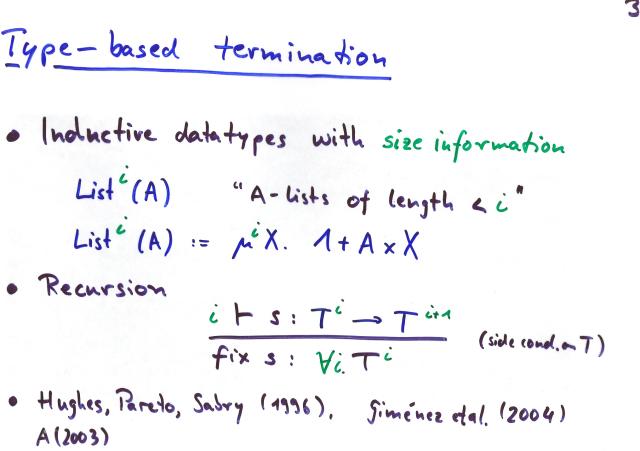 3
Type-based termination
• Inductive datatypes with size information
Listⁱ(A) "A-lists of length < i"
Listⁱ(A) := μⁱX. 1 + A × X
• Recursion
i ⊢ s : Tⁱ → Tⁱ⁺¹
fix s : ∀i. Tⁱ (side cond. on T)
• Hughes, Pareto, Sabry (1996), Giménez et al. (2004)
A (2003)